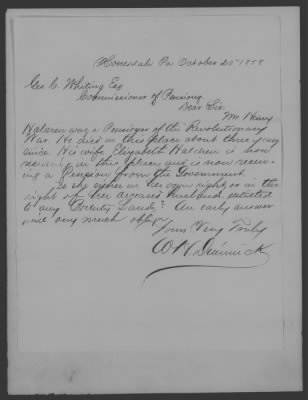 Honesdale Pa October 20th 1858
Geo. C. Whiting Esq
Commissioner of Pensions
Dear Sir.
Mr Henry
Haldren was a Pensioner of the Revolutionary
War. He died in this place about three years
since. His wife Elizabeth Haldren is now
residing in this place and is now receiv-
ing a Pension from the Government.
Is she either in her own right or in the
right of her deceased husband entitled
to any Bounty Lands? An early answer
will very much oblige
Yours Very Truly
W H Dimmick